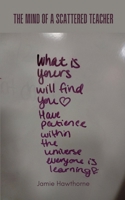 THE MIND OF A SCATTERED TEACHER
What is
yours
will find
you♡
Have
patience
within
the
universe
everyone is
learning
Jamie Hawthorne